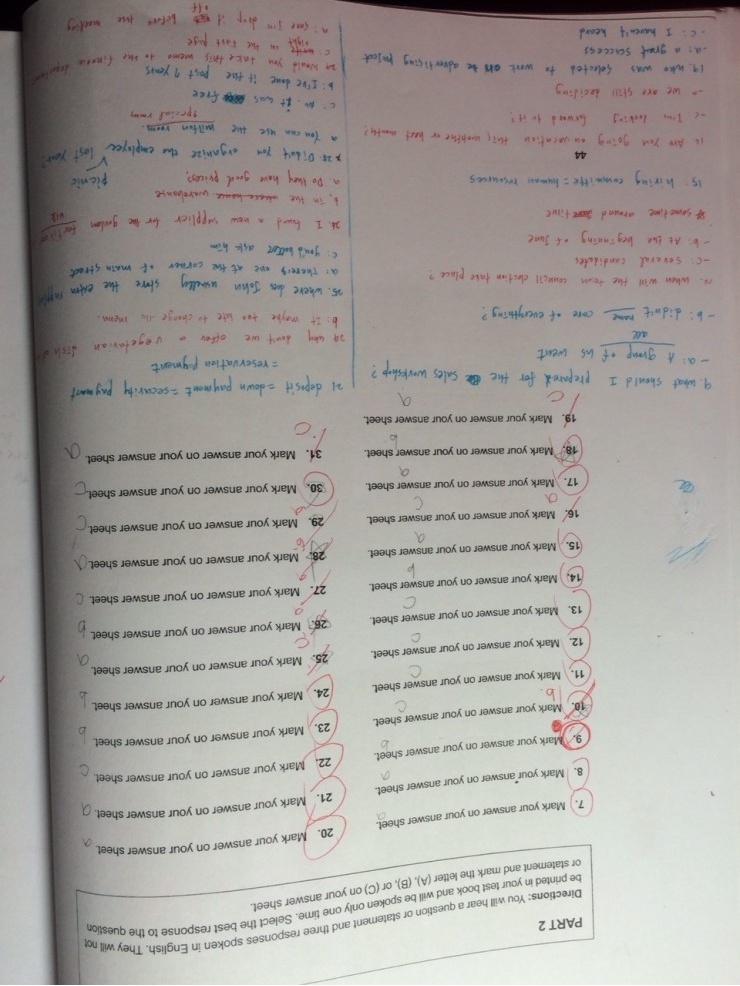 PART 2
Directions: You will hear a question or statement and three responses spoken in English. They will not
be printed in your test book and will be spoken only one time. Select the best response to the question
or statement and mark the letter (A), (B), or (C) on your answer sheet.
7. Mark your answer on your answer sheet. a
8. Mark your answer on your answer sheet. a
9. Mark your answer on your answer sheet. b
10. Mark your answer on your answer sheet. c
b.
11. Mark your answer on your answer sheet. c
12. Mark your answer on your answer sheet. c
13. Mark your answer on your answer sheet. c
14. Mark your answer on your answer sheet. b
15. Mark your answer on your answer sheet. a
16. Mark your answer on your answer sheet. c
a
17. Mark your answer on your answer sheet. a
18. Mark your answer on your answer sheet. b
19. Mark your answer on your answer sheet. a
C
20. Mark your answer on your answer sheet. a
21. Mark your answer on your answer sheet. a
22. Mark your answer on your answer sheet. c
23. Mark your answer on your answer sheet. b
24. Mark your answer on your answer sheet. b
25. Mark your answer on your answer sheet. a
C
26. Mark your answer on your answer sheet. b
a
27. Mark your answer on your answer sheet. c
a
28. Mark your answer on your answer sheet. a
29. Mark your answer on your answer sheet. c
a
30. Mark your answer on your answer sheet. c
31. Mark your answer on your answer sheet. a
C
9. what should I prepared for the sales workshop?
- a: A group of us went
all
- b: didn't name care of everything?
10. when will the town council election take place?
- c: several candidates
- b: At the beginning of June
sometime around time
15: hiring committe = human resources
16 Are you going on vacation this month or next month?
- c I'm looking forward to it?
- we are still deciding
19. who was selected to work on the advertising project
- a: a great success
- c: I haven't heard
21 deposit = down payment = security payment
= reservation payment
why don't we offer a vegetarian dish
b: It maybe too late to change the menu.
25. where does John usually store the extra
a: there's one at the corner of main street
c: you'd better ask him
26. I found a new supplier for the garden
b, in the warehouse
a. Do they have good prices?
28 Didn't you organize the employee picnic last year?
a you can use the special room.
c: No. it was free
b: I've done it the past 7 years
29 would you take this memo to the finance department
c right on the last page
a: sure I'm drop it off before the meeting
44